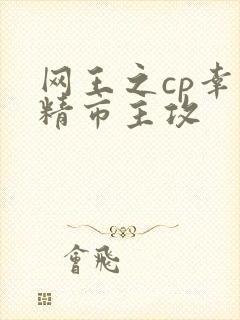 网王之cp幸
精市主攻
會飛